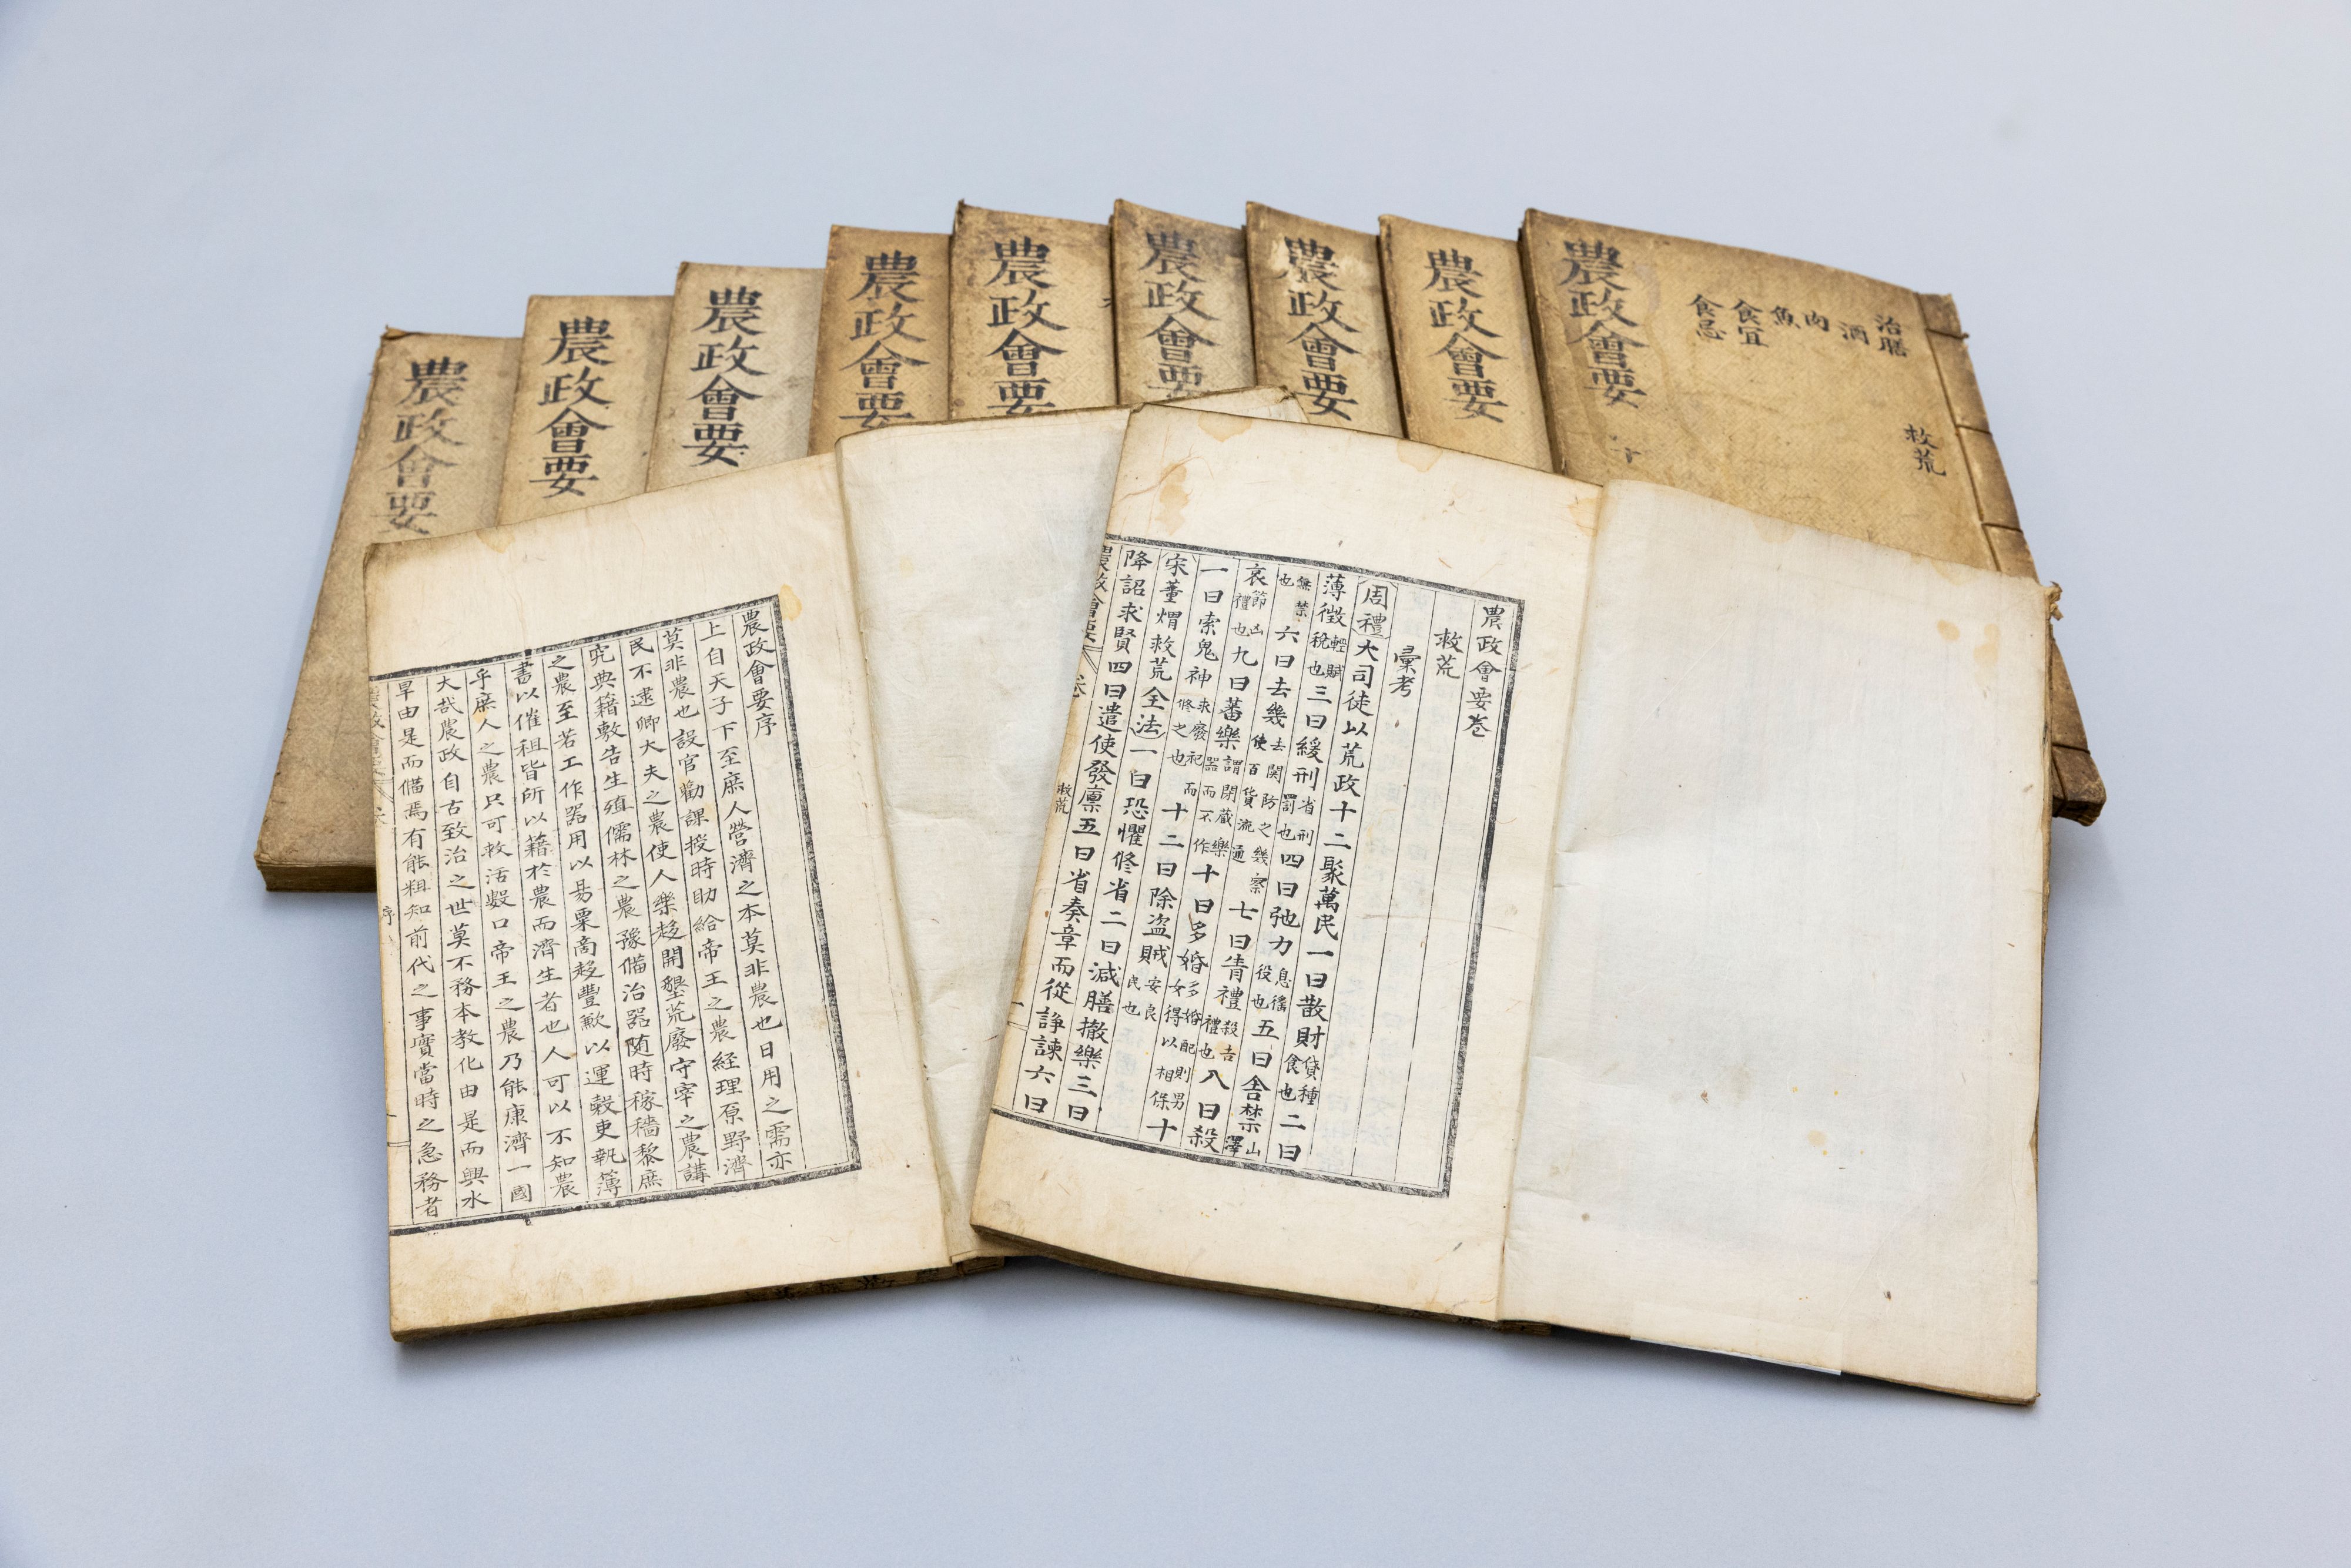 農政會要
農政會要
農政會要
農政會要
農政會要
農政會要
農政會要
農政會要
農政會要
十
治膳
酒
肉
魚
食宜
食忌
救荒
農政會要序
上自天子下至庶人營濟之本莫非農也日用之需亦
莫非農也設官勸課授時助給帝王之農經理原野濟
民不逮卿大夫之農使人樂趍開墾荒廢守宰之農講
究典籍敷告生殖儒林之農豫備治器随時稼穡黎庶
之農至若工作器用以易粟商趍豐歉以運穀吏執簿
書以催租皆所以籍於農而濟生者也人可以不知農
乎庶人之農只可救活數口帝王之農乃能康濟一國
大哉農政自古致治之世莫不務本敎化由是而興水
旱由是而備焉有能粗知前代之事實當時之急務者
序
農政會要卷
救荒
彙考
周禮大司徒以荒政十二聚萬民一曰散財貸種食也二曰
薄徵輕賦稅也三曰緩刑省刑罰也四曰弛力息徭役也五曰舎禁山澤
無禁也六曰去幾去関防之幾察使百貨流通七曰眚禮殺吉禮也八曰殺
哀節凶禮也九曰蕃樂謂閉藏樂器而不作十曰多婚多婚配則男女得以相保十
一曰索鬼神求廢祀而修之也十二曰除盗賊安良民也
宋董煟救荒全法一曰恐懼修省二曰減膳撤樂三曰
降詔求賢四曰遣使發廪五曰省奏章而從諍諫六曰
農政會要卷
救荒
一